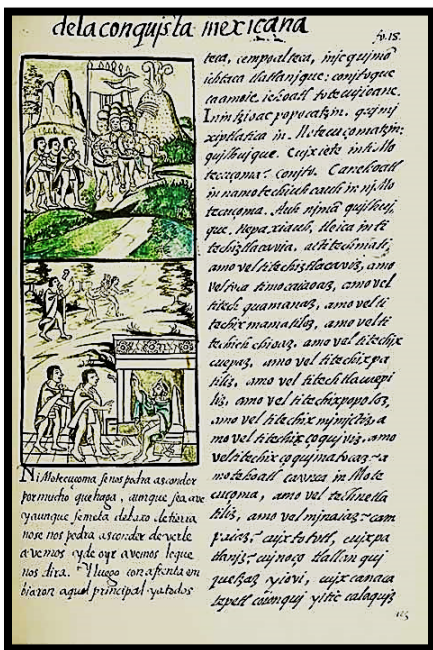 de la conquista mexicana
fo. 18.
Ni Motecuçoma se nos podra asconder
por mucho que haga, aunque sea ave
y aunque se meta debaxo de tierra
no se nos podra asconder de verle
avemos y de oyr avemos lo que
nos dira. Y luego con afrenta em
biaron aquel principal y a todos
teca, cempoalteca, injc qujmo
ichtaca tlatlanjque: conjtoque
ca amo ie iehoatl totecujoane.
Inin tzioac popocatzin. qujmj
xiptlatica in Motecuçomatzin:
qujlhujque. Cujx iete in ti Mo
tecuçoma? Conjto. Ca nehoatl
in namotechiuhcauh in nj Mo
tecuçoma. Auh njmã qujlhuj
que. Nepa xiauh, tleica in ti
techiztlacavia, ac titechmati,
amo vel titechiztlacaviz, amo
vel toca timocaiaoaz, amo vel
titech quamanaz, amo vel ti
techix mamatiloz, amo vel ti
techich chioaz, amo vel titechix
cuepaz, amo vel titechixpa
tiliz, amo vel titech tlacuepi
liz, amo vel titechixpopoloz,
amo vel titechix mjmjctiz, a
mo vel titechixçoqujviz, amo
vel titechixçoqujmatocaz, a
mo tehoatl ca vnca in Mote
cuçoma, amo vel technetla
tiliz, amo vel mjnaiaz, cam
pa iaz, cujx tototl, cujx pa
tlanjz, cujnoço tlallan quj
quetzaz yiovi, cujx canaca
tepetl coionquj yitic calaquiz